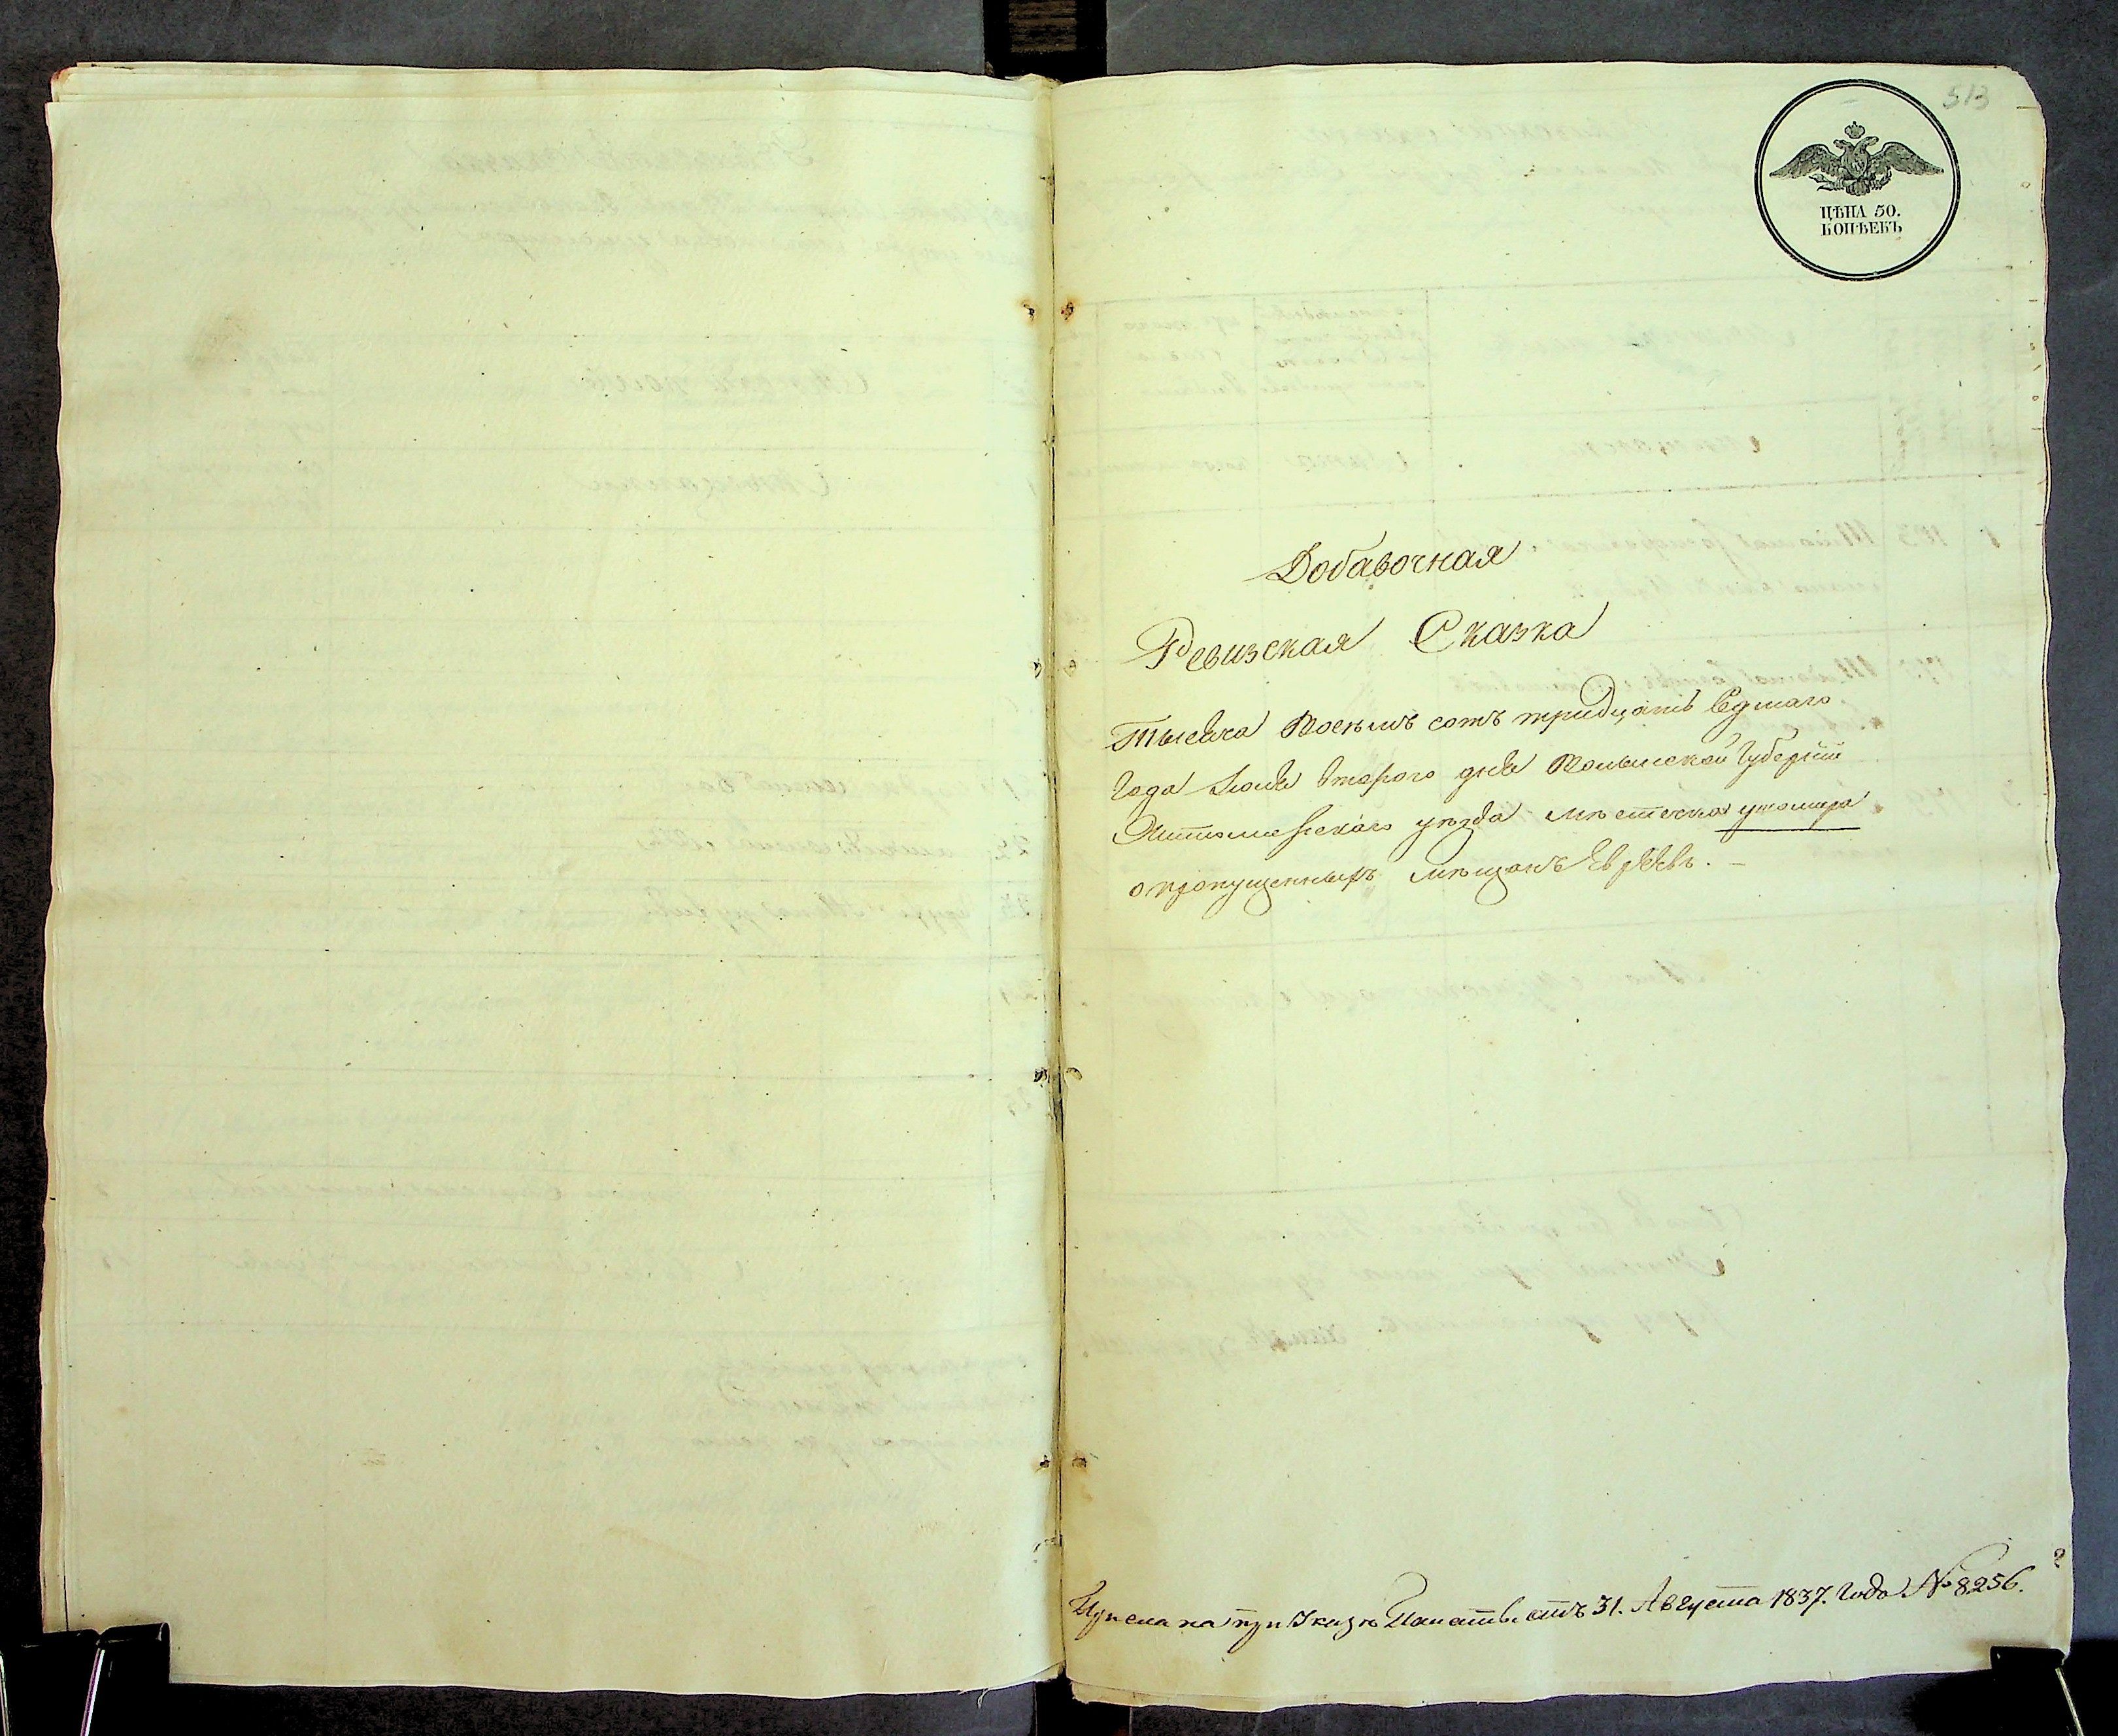 513
ЦѢНА 50.
КОПѢЕКЪ
Добавочная
Ревизская Сказка
Тысяча Восѣмъ сотъ тридцать Седмаго
Года Іюля Втораго дня Волынской Губерніи
Житомирскаго уѣзда мѣстечка ушомира
о пропущенныхъ мѣщанъ Евреевъ. —
Прислана при Указѣ Палаты отъ 31. Августа 1837. Года № 8256.